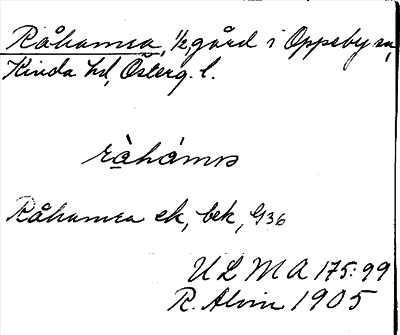 Råhamra, 1/2 gård i Oppeby sn,
Kinda hd, Österg. l.
Råhamra ek, bek, G36
ULMA 175:99
R. Alvin 1905